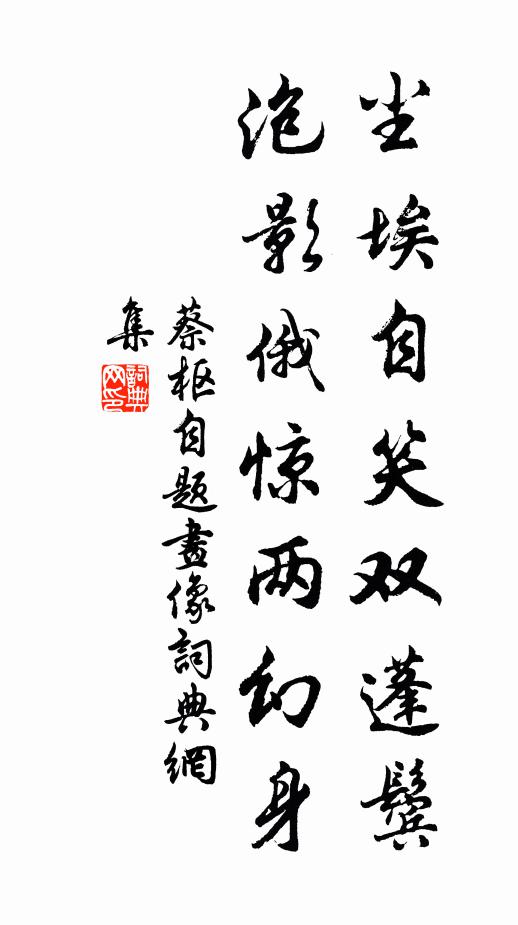 尘埃自笑双蓬鬓
泡影俄惊两幻身
蔡枢自题畫像詞典網
集
詞典
网印